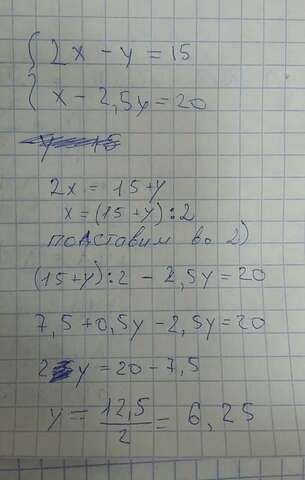 2x - y = 15
x - 2,5y = 20
2x = 15+y
x = (15+y):2
подставим во 2)
(15+y):2 - 2,5y = 20
7,5 + 0,5y - 2,5y = 20
2y = 20 - 7,5
y = 12,5/2 = 6,25